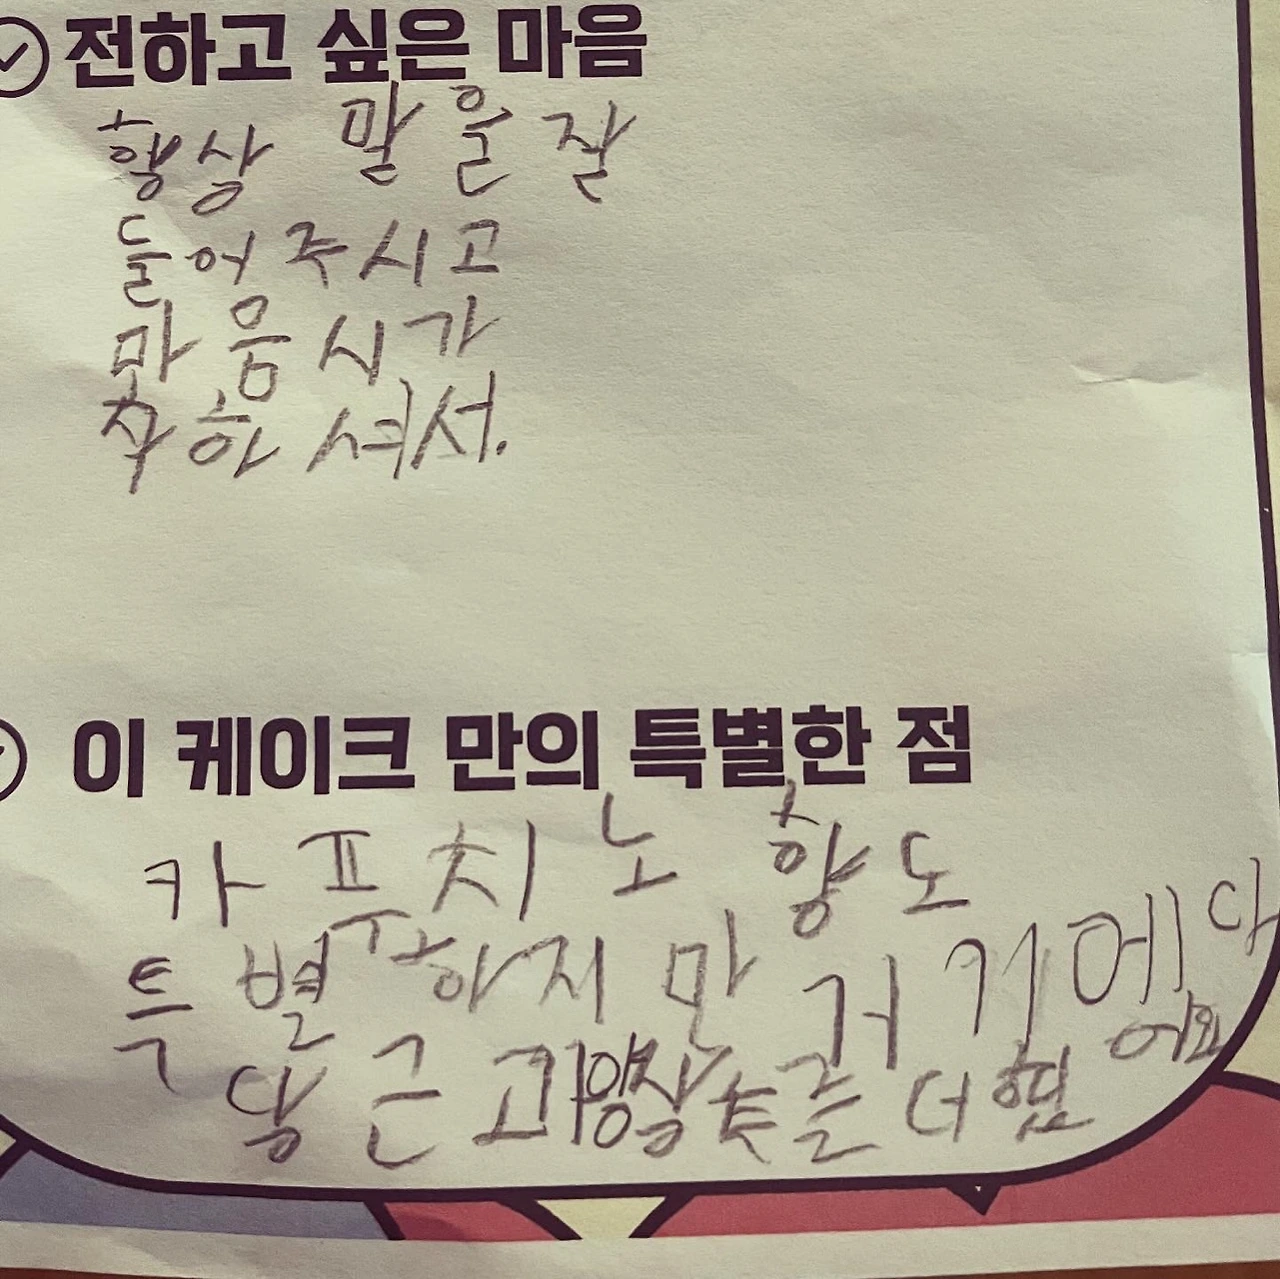 전하고 싶은 마음
항상 말을 잘
들어주시고
마음시가
착하셔서.
이 케이크 만의 특별한 점
카푸치노 향도
특별하지만 거기에다
당근과 양상추를 더했
어요